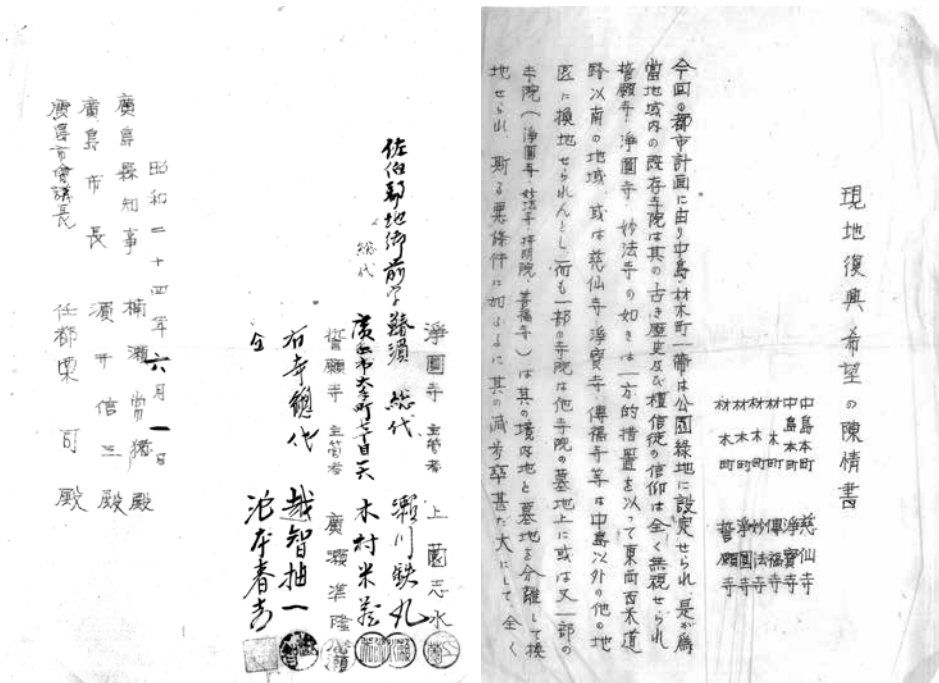 現地復興希望の陳情書
中島本町 慈仙寺
中島本町 淨寳寺
材木町 傳福寺
材木町 妙法寺
材木町 淨圓寺
材木町 誓願寺
今回の都市計画に由り中島、材木町一帶は公園緑地に設定せられ、是が爲
當地域内の既存寺院は其の古き歴史及び檀信徒の信仰は全く無視せられ
誓願寺、淨圓寺、妙法寺の如きは一方的措置を以って東西百米道
路以南の地域、或は慈仙寺、淨寳寺、傳福寺等は中島以外の他の地
区に換地せられんとし、而も一部の寺院は他寺院の墓地上に或は又一部の
寺院(淨圓寺、妙法寺、善福寺)は其の境内地と墓地を分離して換
地せられ、斯る悪條件に加ふるに其の減歩率甚だ大にして、全く
淨圓寺 主管者 上薗志水
佐伯郡地御前字鰆濱 総代 瀬川鉄丸
総代 廣島市大手町七丁目 木村米蔵
誓願寺 主管者 廣瀬準隆
右寺總代 越智抽一
仝 沱本春吉
昭和二十四年六月一日
廣島縣知事 楠瀬常猪殿
廣島市長 濱井信三殿
廣島市會議長 任都栗司殿